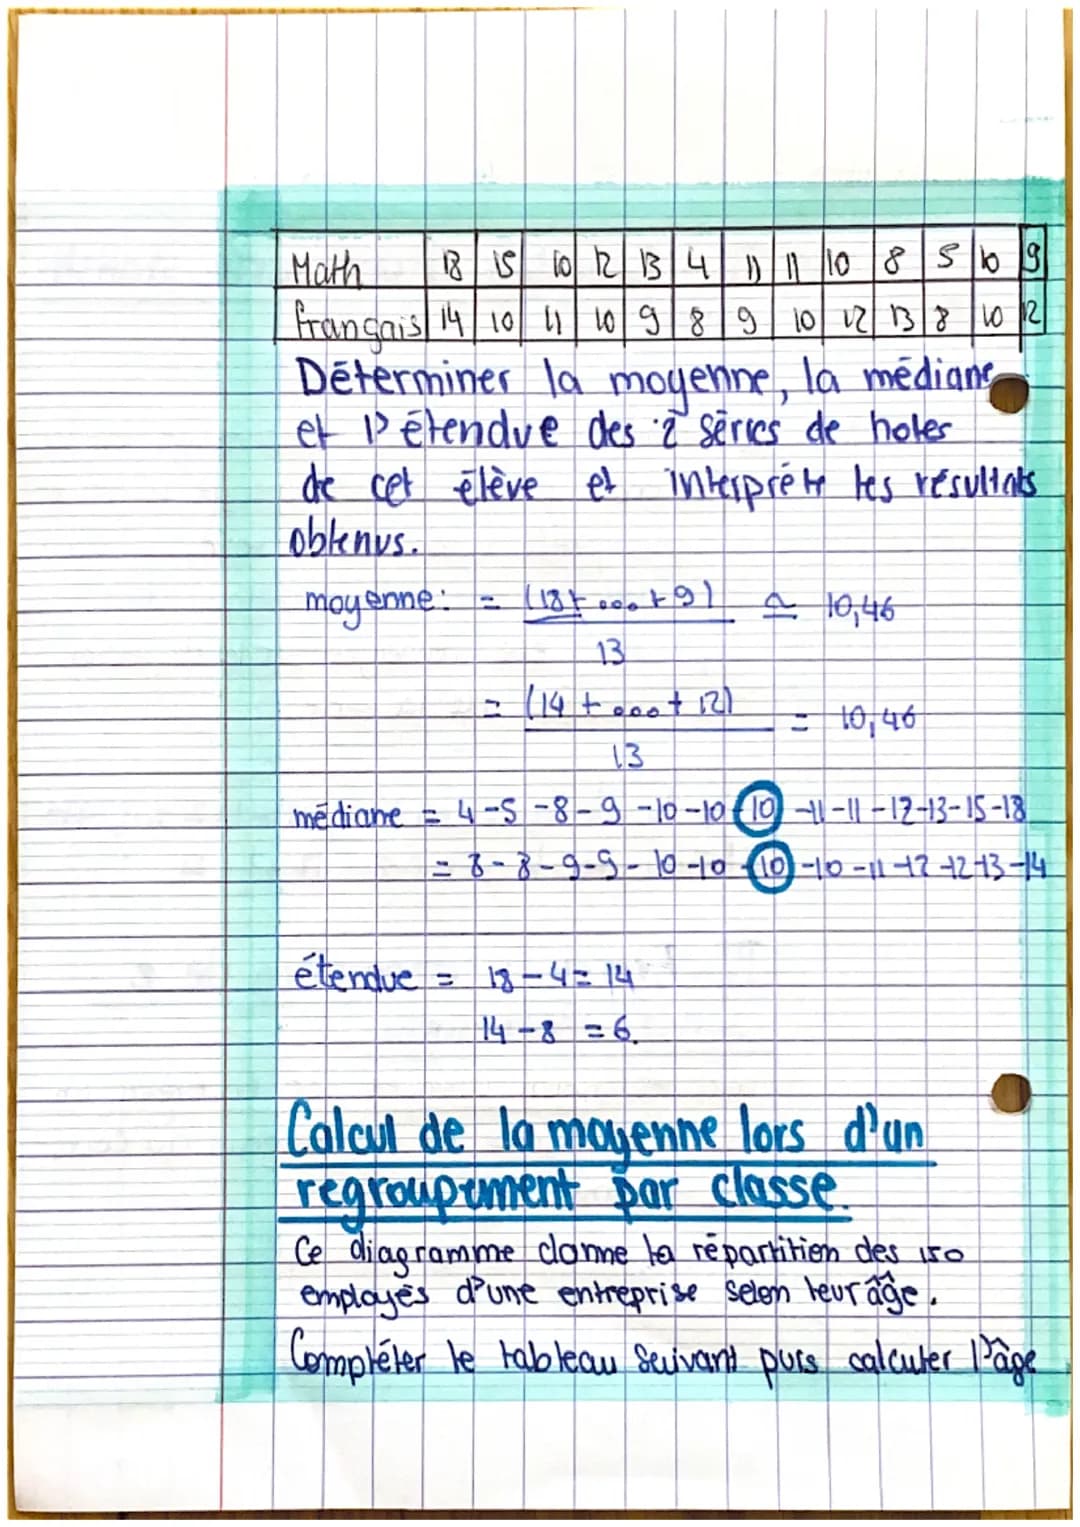 Math 18 15 10 12 13 4 11 11 10 8 5 10 9
français 14 10 11 10 9 8 9 10 12 13 8 10 12
Déterminer la moyenne, la médiane
et l'étendue des 2 séries de notes
de cet élève et interpréte les résultats
obtenus.
moyenne: = (18+...+9) ≃ 10,46
13
= (14+...+12) = 10,46
13
médiane = 4-5-8-9-10-10-10-11-11-12-13-15-18
= 8-8-9-9-10-10-10-10-11-12-12-13-14
étendue = 18-4=14
14-8=6.
Calcul de la moyenne lors d'un
regroupement par classe.
Ce diagramme donne la répartition des 150
employés d'une entreprise selon leur âge.
Compléter le tableau suivant puis calculer l'âge